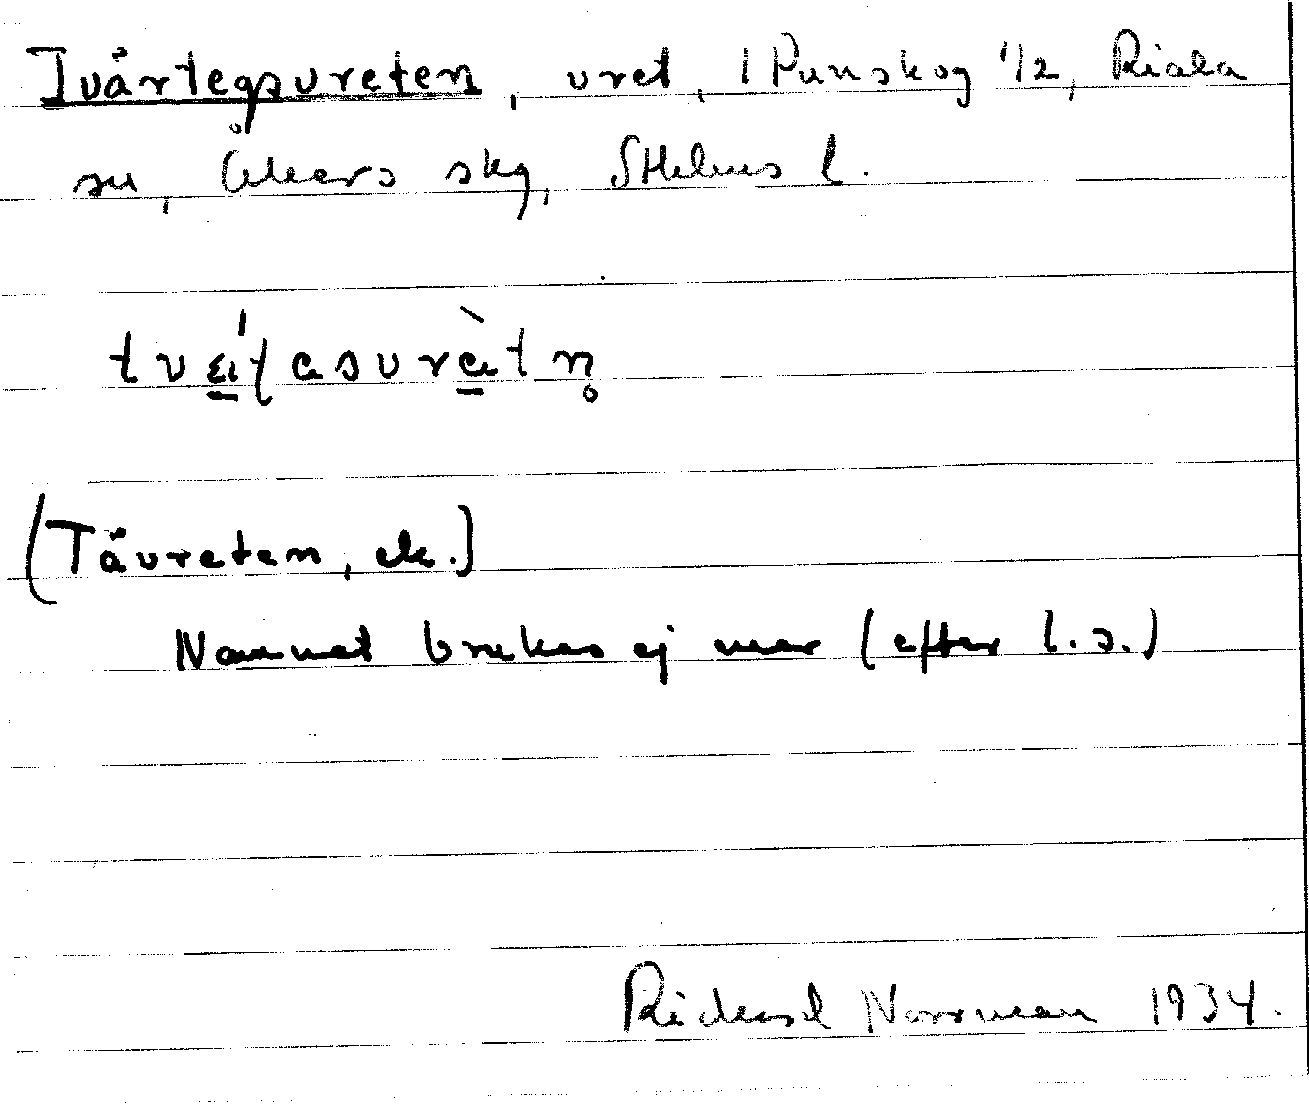 Tvärtegsvreten, vret, 1 Punskog 1/2, Riala
sn, Åkers skg, Sthlms l.
(Tåvreten, ek.)
Namnet brukas ej mer (efter l.s.)
Rickard Norrman 1934.